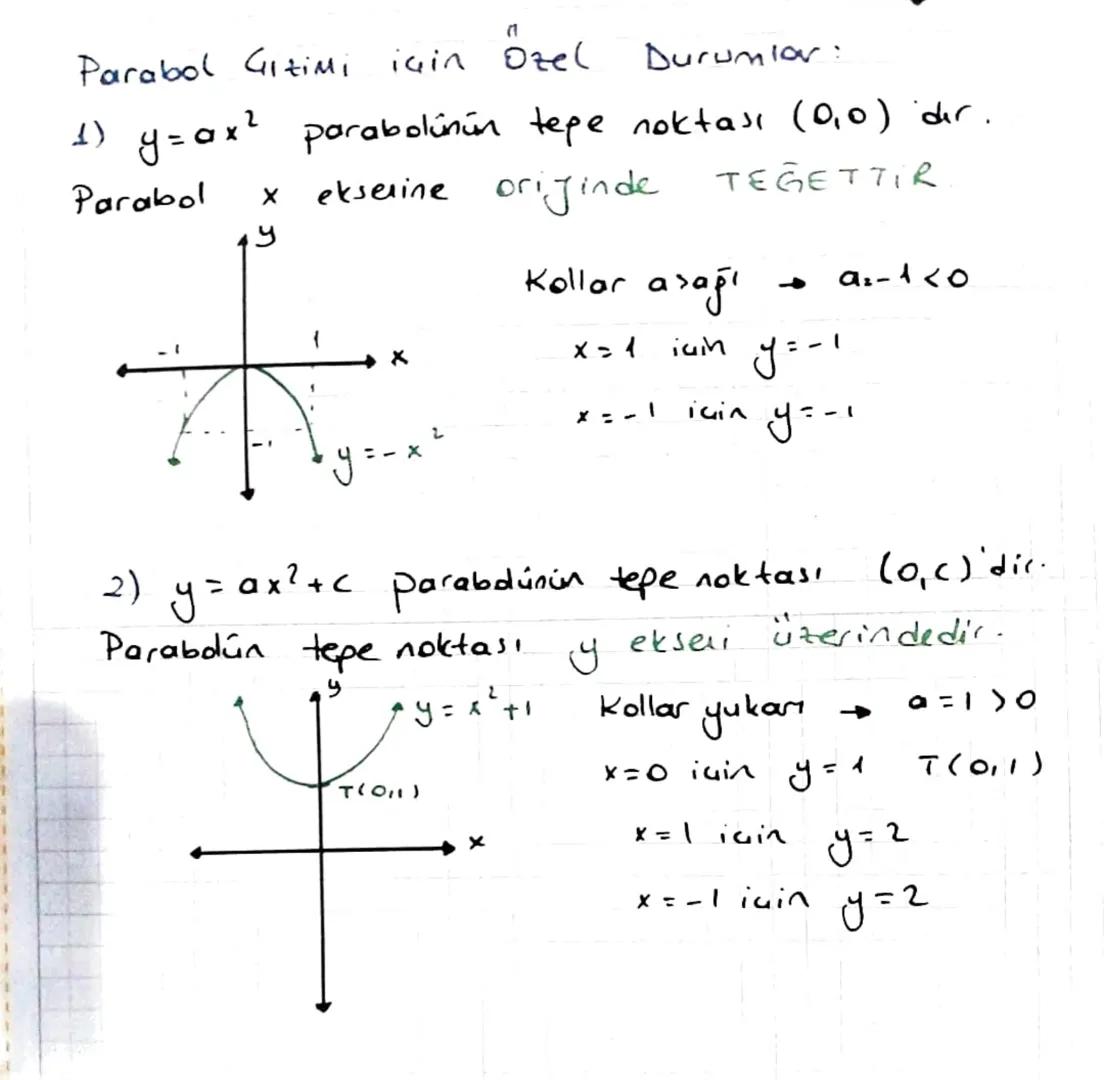 Parabol Çizimi için Özel Durumlar:
1) y=ax² parabolünün tepe noktası (0,0)'dır.
Parabol x eksenine orijinde TEĞETTİR
y
Kollar aşağı → a=-1<0
-1 1 x
x=1 için y=-1
x=-1 için y=-1
-1
y=-x²
2) y=ax²+c parabolünün tepe noktası (0,c)'dir.
Parabolün tepe noktası y ekseni üzerindedir.
y
y=x²+1
Kollar yukarı → a=1>0
x=0 için y=1 T(0,1)
T(0,1)
x=1 için y=2
x
x=-1 için y=2